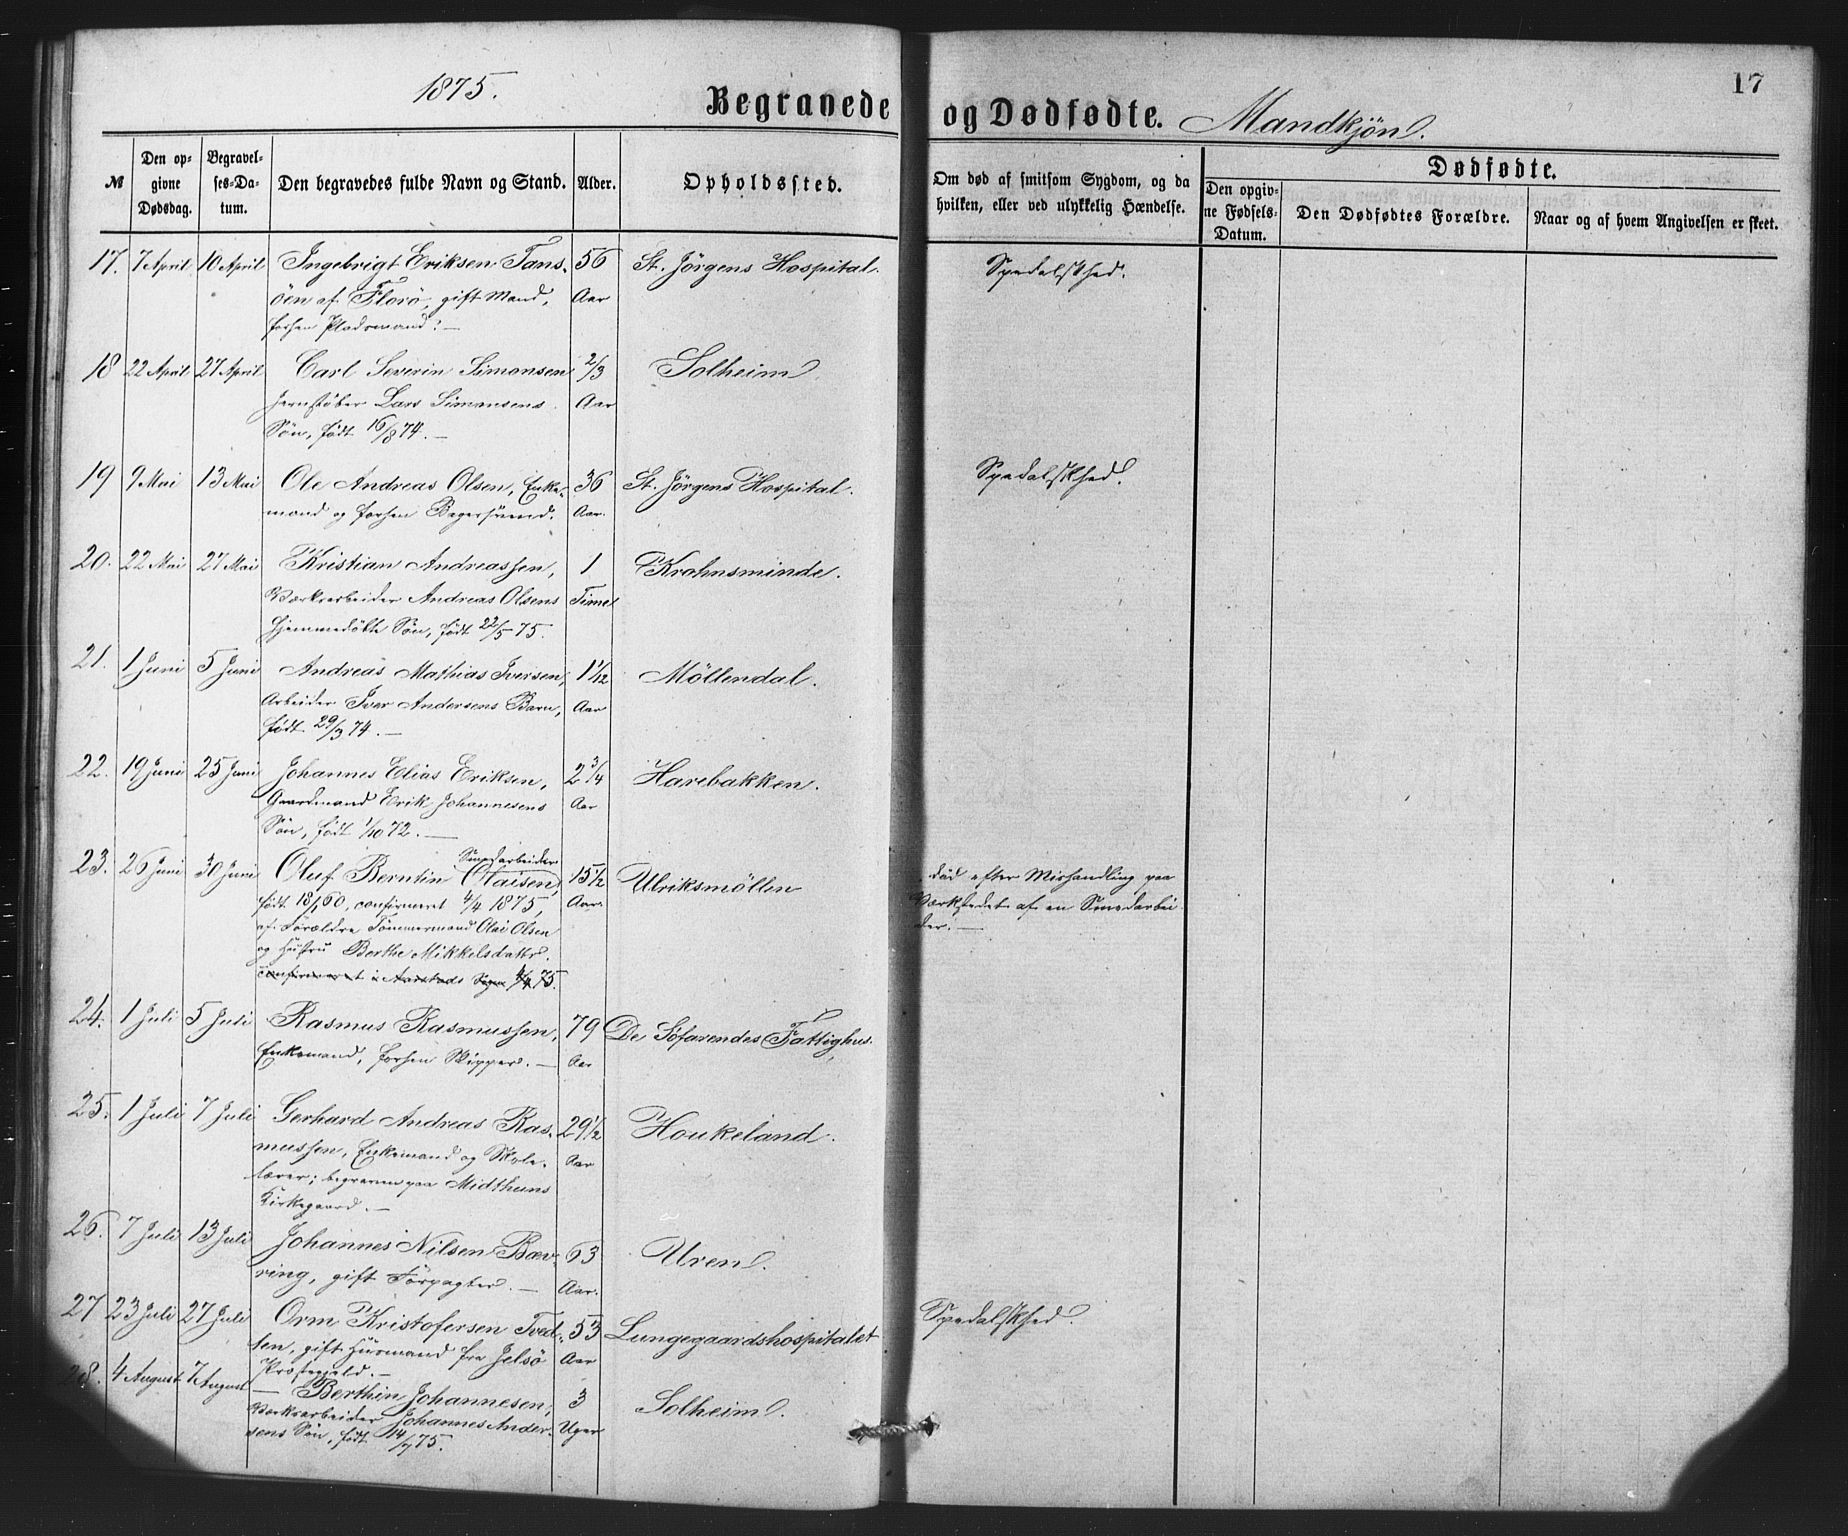 1875.
17
Begravede og Dødfødte. Mandkjøn.
№
Den op-
givne
Dødsdag.
Begravel-
ses-Da-
tum.
Den begravedes fulde Navn og Stand.
Alder.
Opholdssted.
Om død af smitsom Sygdom, og da
hvilken, eller ved ulykkelig Hændelse.
Dødfødte.
Den opgiv-
ne Fødsels-
Datum.
Den Dødfødtes Forældre.
Naar og af hvem Angivelsen er skeet.
17. 7 April 10 April Ingebrigt Eriksen Tans- 56 St. Jörgens Hospital. Spedalskhed.
öen af Florö, gift Mand, Aar
forhen Pladsmand. —
18 22 April 27 April Carl Severin Simonsen 2/3 Solheim
Jernstöber Lars Simonsens Aar
Sön, födt 16/8 74. —
19 9 Mai 13 Mai Ole Andreas Olsen, Enke- 36 St. Jörgens Hospital. Spedalskhed.
mand og forhen Bagersvend. Aar.
20. 22 Mai 27 Mai Kristian Andreassen, 1 Krohnsminde.
Værksarbeider Andreas Olsens Time
hjemmedöbte Sön, födt 22/5 75.
21. 1 Juni 5 Juni Andreas Mathias Iversen, 1 1/12 Möllendal.
Arbeider Iver Andersens Barn, Aar
födt 29/3 74. —
22. 19 Juni 25 Juni Johannes Elias Eriksen, 2 3/4 Harebakken.
Gaardmand Erik Johannesens Aar
Sön, födt 1/10 72. —
Smedarbeider
23. 26 Juni 30 Juni Oluf Berntin Olaisen, 15 1/2 Ulriksmöllen död efter Mishandling paa
födt 18/1 60, confirmeret 4/4 1875, Aar. Værkstedet af en Smedarbei-
af Forældre Tömmermand Olai Olsen der. —
og Hustru Berthe Mikkelsdatter.
confirmeret i Aarstads Sogn 4/4 75.
24. 1 Juli 5 Juli Rasmus Rasmussen, 79 De Söfarendes Fattighus.
Enkemand, forhen Skipper. — Aar
25. 1 Juli 7 Juli Gerhard Andreas Ras- 29 1/2 Houkeland.
mussen, Enkemand og Skole- Aar
lærer; begraven paa Midthuns
Kirkegaard. —
26. 7 Juli 13 Juli Johannes Nilsen Bæv- 63 Uren.
ring, gift Forpagter. — Aar.
27 23 Juli 27 Juli Orm Kristofersen Tved- 53 Lungegaardshospitalet Spedalskhed.
ten, gift Husmand fra Jelsö Aar
Præstegjeld. —
28. 4 August 7 August — Berthin Johannesen, 3 Solheim.
Værksarbeider Johannes Ander- Uger
sens Sön, födt 14/7 75.